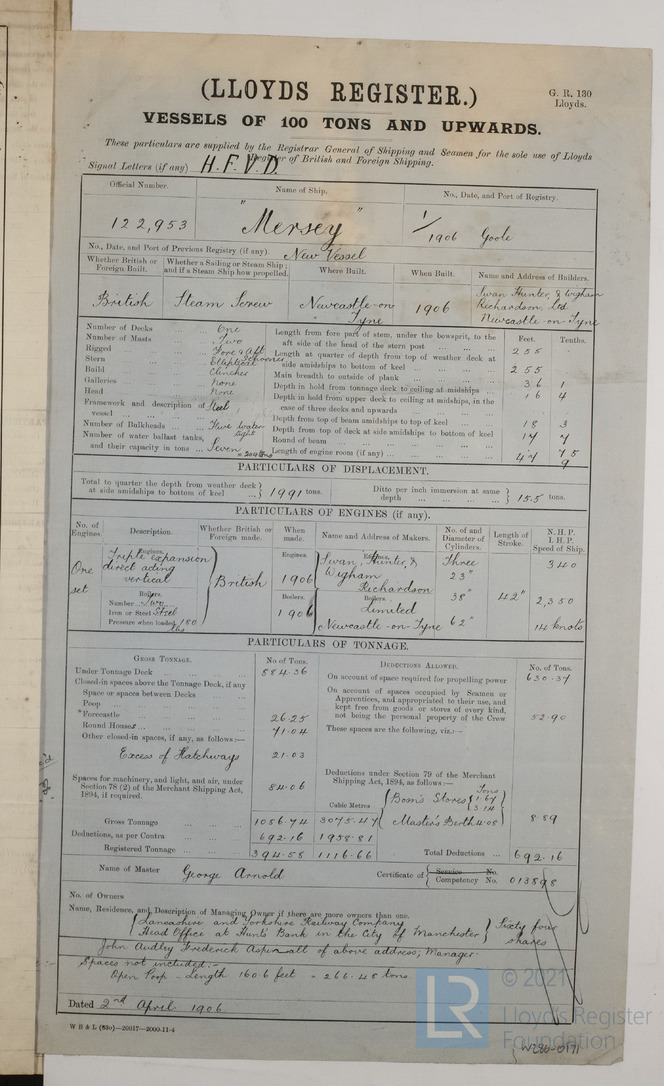 (LLOYDS REGISTER.)
G. R. 130
Lloyds.
VESSELS OF 100 TONS AND UPWARDS.
These particulars are supplied by the Registrar General of Shipping and Seamen for the sole use of Lloyds
Register of British and Foreign Shipping.
Signal Letters (if any) H.F.V.D.
Official Number. Name of Ship. No., Date, and Port of Registry.
122,953 "Mersey" 1/1906 Goole
No., Date, and Port of Previous Registry (if any). New Vessel
Whether British or Foreign Built. Whether a Sailing or Steam Ship; and if a Steam Ship how propelled. Where Built. When Built. Name and Address of Builders.
British Steam Screw Newcastle-on Tyne 1906 Swan Hunter, & Wigham Richardson, Ltd Newcastle-on-Tyne
Number of Decks One
Number of Masts Two
Rigged Fore & Aft Schooner
Stern Elliptical
Build Clincher
Galleries None
Head None
Framework and description of vessel Steel
Number of Bulkheads Five water tight
Number of water ballast tanks, and their capacity in tons Seven = 204 tons
Feet. Tenths.
Length from fore part of stem, under the bowsprit, to the aft side of the head of the stern post 255
Length at quarter of depth from top of weather deck at side amidships to bottom of keel 255
Main breadth to outside of plank 36 1
Depth in hold from tonnage deck to ceiling at midships 16 4
Depth in hold from upper deck to ceiling at midships, in the case of three decks and upwards
Depth from top of beam amidships to top of keel 18 3
Depth from top of deck at side amidships to bottom of keel 17 7
Round of beam 75
Length of engine room (if any) 47 9
PARTICULARS OF DISPLACEMENT.
Total to quarter the depth from weather deck at side amidships to bottom of keel } 1991 tons.
Ditto per inch immersion at same depth } 15.5 tons.
PARTICULARS OF ENGINES (if any).
No. of Engines. Description. Whether British or Foreign made. When made. Name and Address of Makers. No. of and Diameter of Cylinders. Length of Stroke. N.H.P. I.H.P. Speed of Ship.
One set
Engines.
Triple expansion direct acting vertical
Boilers.
Number Two
Iron or Steel Steel
Pressure when loaded 180 lbs
British
Engines. 1906
Boilers. 1906
Engines.
Swan, Hunter, & Wigham Richardson
Boilers.
Limited
Newcastle-on-Tyne
Three 23" 38" 62"
42"
340
2,350
14 knots
PARTICULARS OF TONNAGE.
GROSS TONNAGE. No of Tons.
Under Tonnage Deck 884.36
Closed-in spaces above the Tonnage Deck, if any
Space or spaces between Decks
Poop
*Forecastle 26.25
Round Houses 71.04
Other closed-in spaces, if any, as follows:—
Excess of Hatchways 21.03
Spaces for machinery, and light, and air, under Section 78 (2) of the Merchant Shipping Act, 1894, if required. 84.06
Cubic Metres
Gross Tonnage 1086.74 3075.47
Deductions, as per Contra 692.16 1958.81
Registered Tonnage 394.58 1116.66
DEDUCTIONS ALLOWED. No. of Tons.
On account of space required for propelling power 630.37
On account of spaces occupied by Seamen or Apprentices, and appropriated to their use, and kept free from goods or stores of every kind, not being the personal property of the Crew 52.90
These spaces are the following, viz.:—
Deductions under Section 79 of the Merchant Shipping Act, 1894, as follows:—
Tons
Bosn's Stores { 1.67 3.14
Master's Berth 4.08
8.89
Total Deductions 692.16
Name of Master George Arnold
Certificate of { Service No. Competency No. 013898
No. of Owners
Name, Residence, and Description of Managing Owner if there are more owners than one.
Lancashire and Yorkshire Railway Company
Head Office at Hunt's Bank in the City of Manchester } Sixty four shares
John Audley Frederick Aspinall of above address, Manager
Spaces not included:—
Open Poop – Length 160.6 feet = 266.48 tons
Dated 2nd April 1906
W B & L (83o)—20017—2000-11-4
© 2021
LR
Lloyd's Register
Foundation
W280-0171